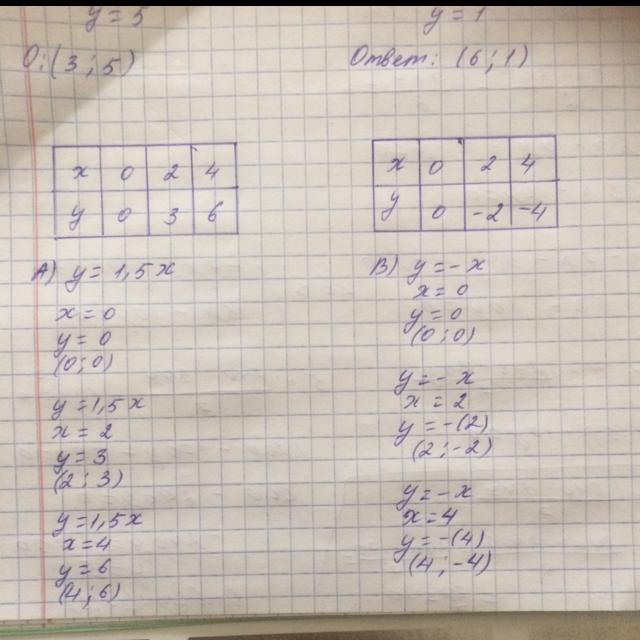 y = 5
О: (3 ; 5)
x 0 2 4
y 0 3 6
А) y = 1,5x
x = 0
y = 0
(0 ; 0)
y = 1,5x
x = 2
y = 3
(2 ; 3)
y = 1,5x
x = 4
y = 6
(4 ; 6)
y = 1
Ответ: (6 ; 1)
x 0 2 4
y 0 -2 -4
В) y = - x
x = 0
y = 0
(0 ; 0)
y = - x
x = 2
y = -(2)
(2 ; -2)
y = - x
x = 4
y = -(4)
(4 ; -4)